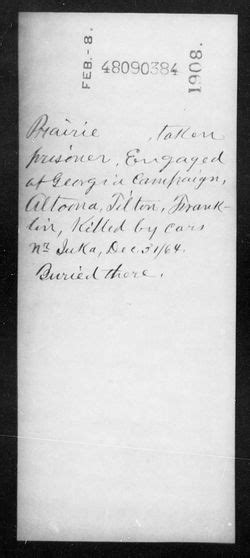 FEB.-8.
48090384
1908.
Prairie , taken
prisoner, Engaged
at Georgia Campaign,
Altoona, Tilton, Frank-
lin, Killed by cars
Nr Iuka, Dec 31/64.
Buried there.